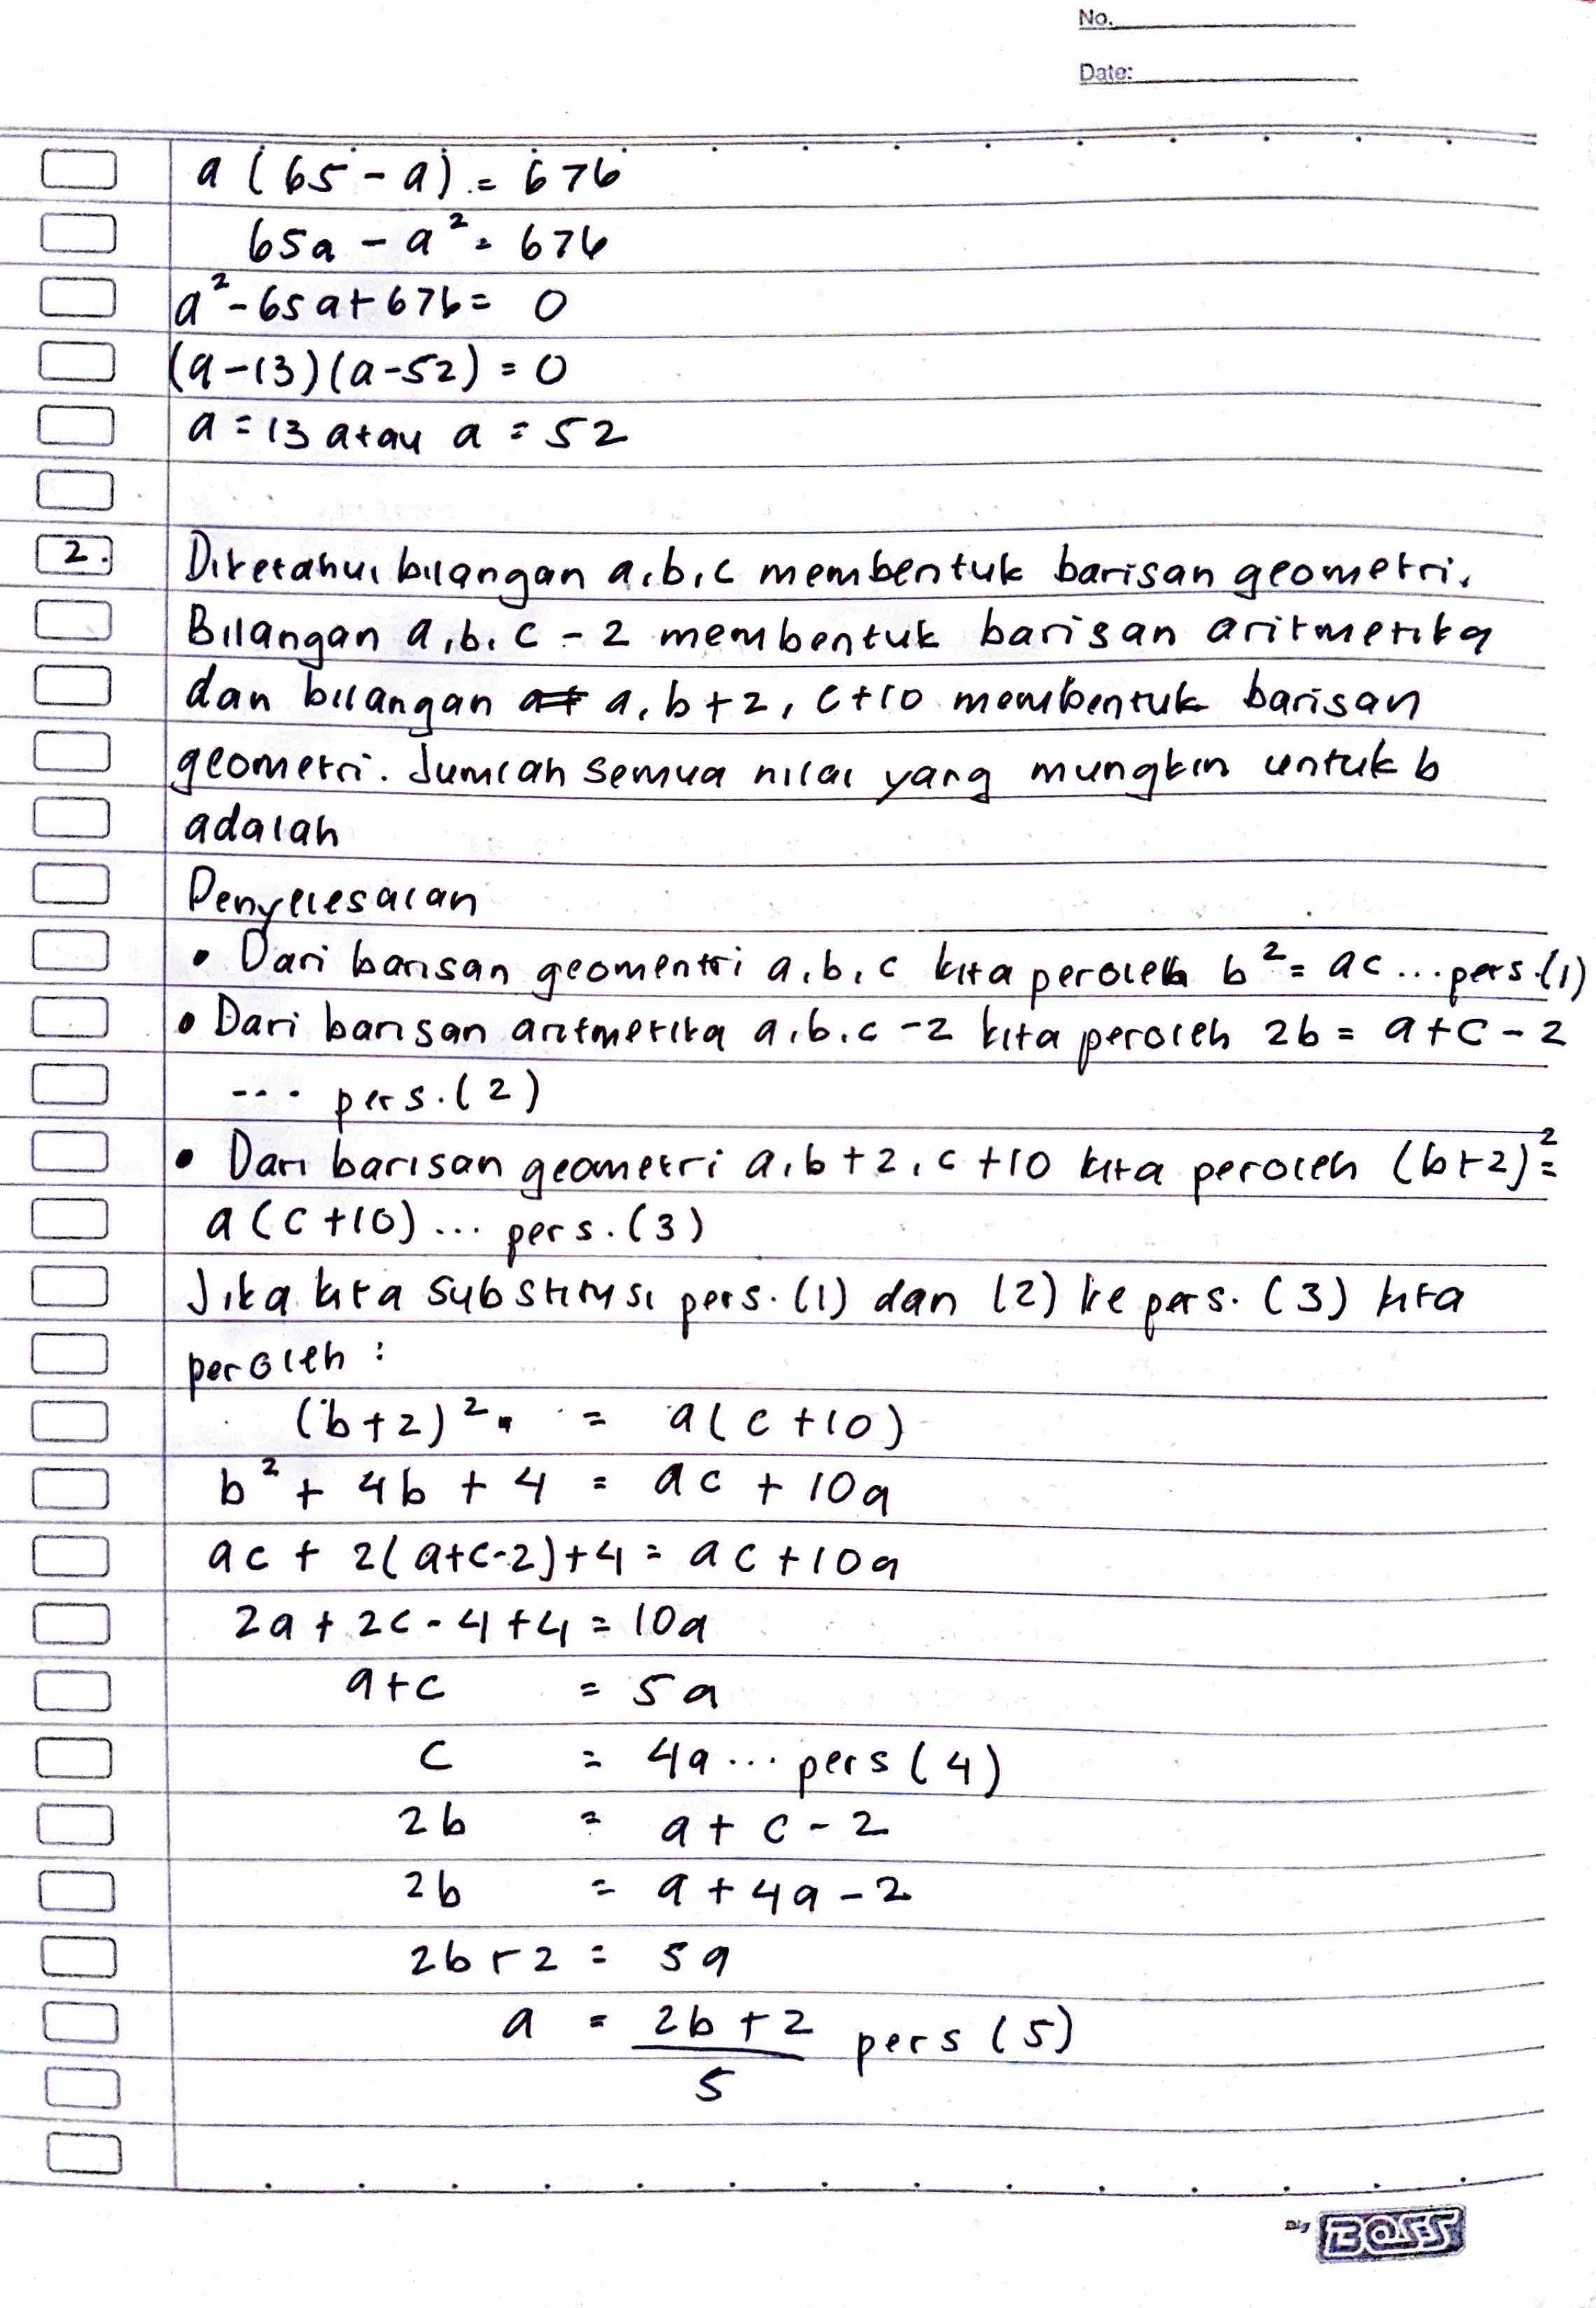 No.
Date:
a (65 - a) = 676
65a - a² = 676
a² - 65a + 676 = 0
(a-13)(a-52) = 0
a = 13 atau a = 52
2. Diketahui bilangan a,b,c membentuk barisan geometri.
Bilangan a,b,c - 2 membentuk barisan aritmetika
dan bilangan a, b+2, c+10 membentuk barisan
geometri. Jumlah semua nilai yang mungkin untuk b
adalah
Penyelesaian
• Dari barisan geomentri a,b,c kita peroleh b² = ac ... pers.(1)
• Dari barisan aritmetika a,b,c -2 kita peroleh 2b = a+c-2
... pers.(2)
• Dari barisan geometri a,b+2,c+10 kita peroleh (b+2)² =
a(c+10) ... pers.(3)
Jika kita substitusi pers.(1) dan (2) ke pers.(3) kita
peroleh :
(b+2)² = a(c+10)
b² + 4b + 4 = ac + 10a
ac + 2(a+c-2)+4 = ac+10a
2a + 2c - 4 + 4 = 10a
a+c = 5a
c = 4a ... pers (4)
2b = a + c - 2
2b = a + 4a - 2
2b + 2 = 5a
a = 2b + 2 pers (5)
5
Big BOSS